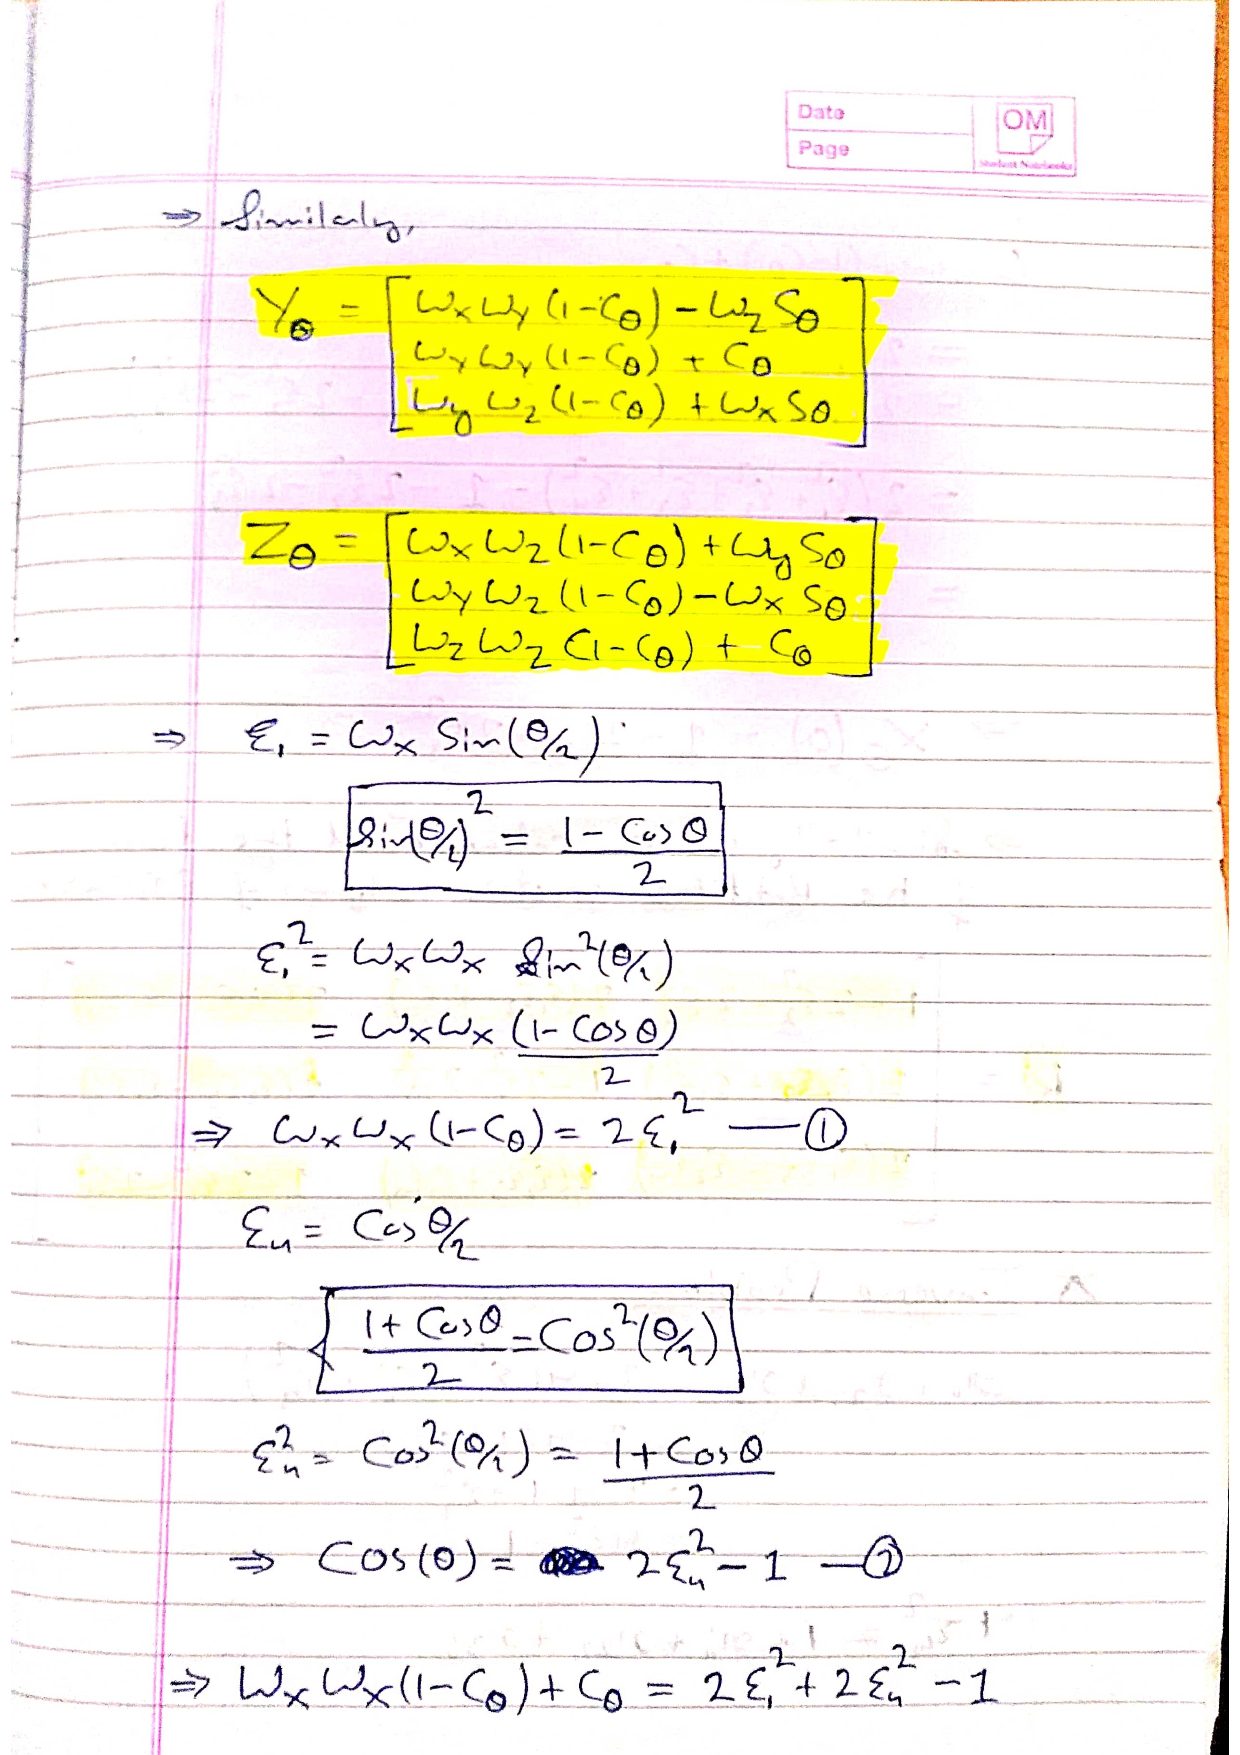 Date
Page
OM
Student Notebooks
⇒ Similarly,
Yθ = [ ωxωy (1-Cθ) - ωz Sθ
ωyωy (1-Cθ) + Cθ
ωy ωz (1-Cθ) + ωx Sθ ]
Zθ = [ ωx ωz (1-Cθ) + ωy Sθ
ωy ωz (1-Cθ) - ωx Sθ
ωz ωz (1-Cθ) + Cθ ]
⇒ ε₁ = ωx Sin(θ/2)
Sin(θ/2)² = (1 - Cosθ)/2
ε₁² = ωx ωx Sin²(θ/2)
= ωx ωx (1 - Cosθ)/2
⇒ ωx ωx (1-Cθ) = 2ε₁² — ①
ε₄ = Cos θ/2
(1 + Cosθ)/2 = Cos²(θ/2)
ε₄² = Cos²(θ/2) = (1 + Cosθ)/2
⇒ Cos(θ) = 2ε₄² - 1 — ②
⇒ ωx ωx (1-Cθ) + Cθ = 2ε₁² + 2ε₄² - 1